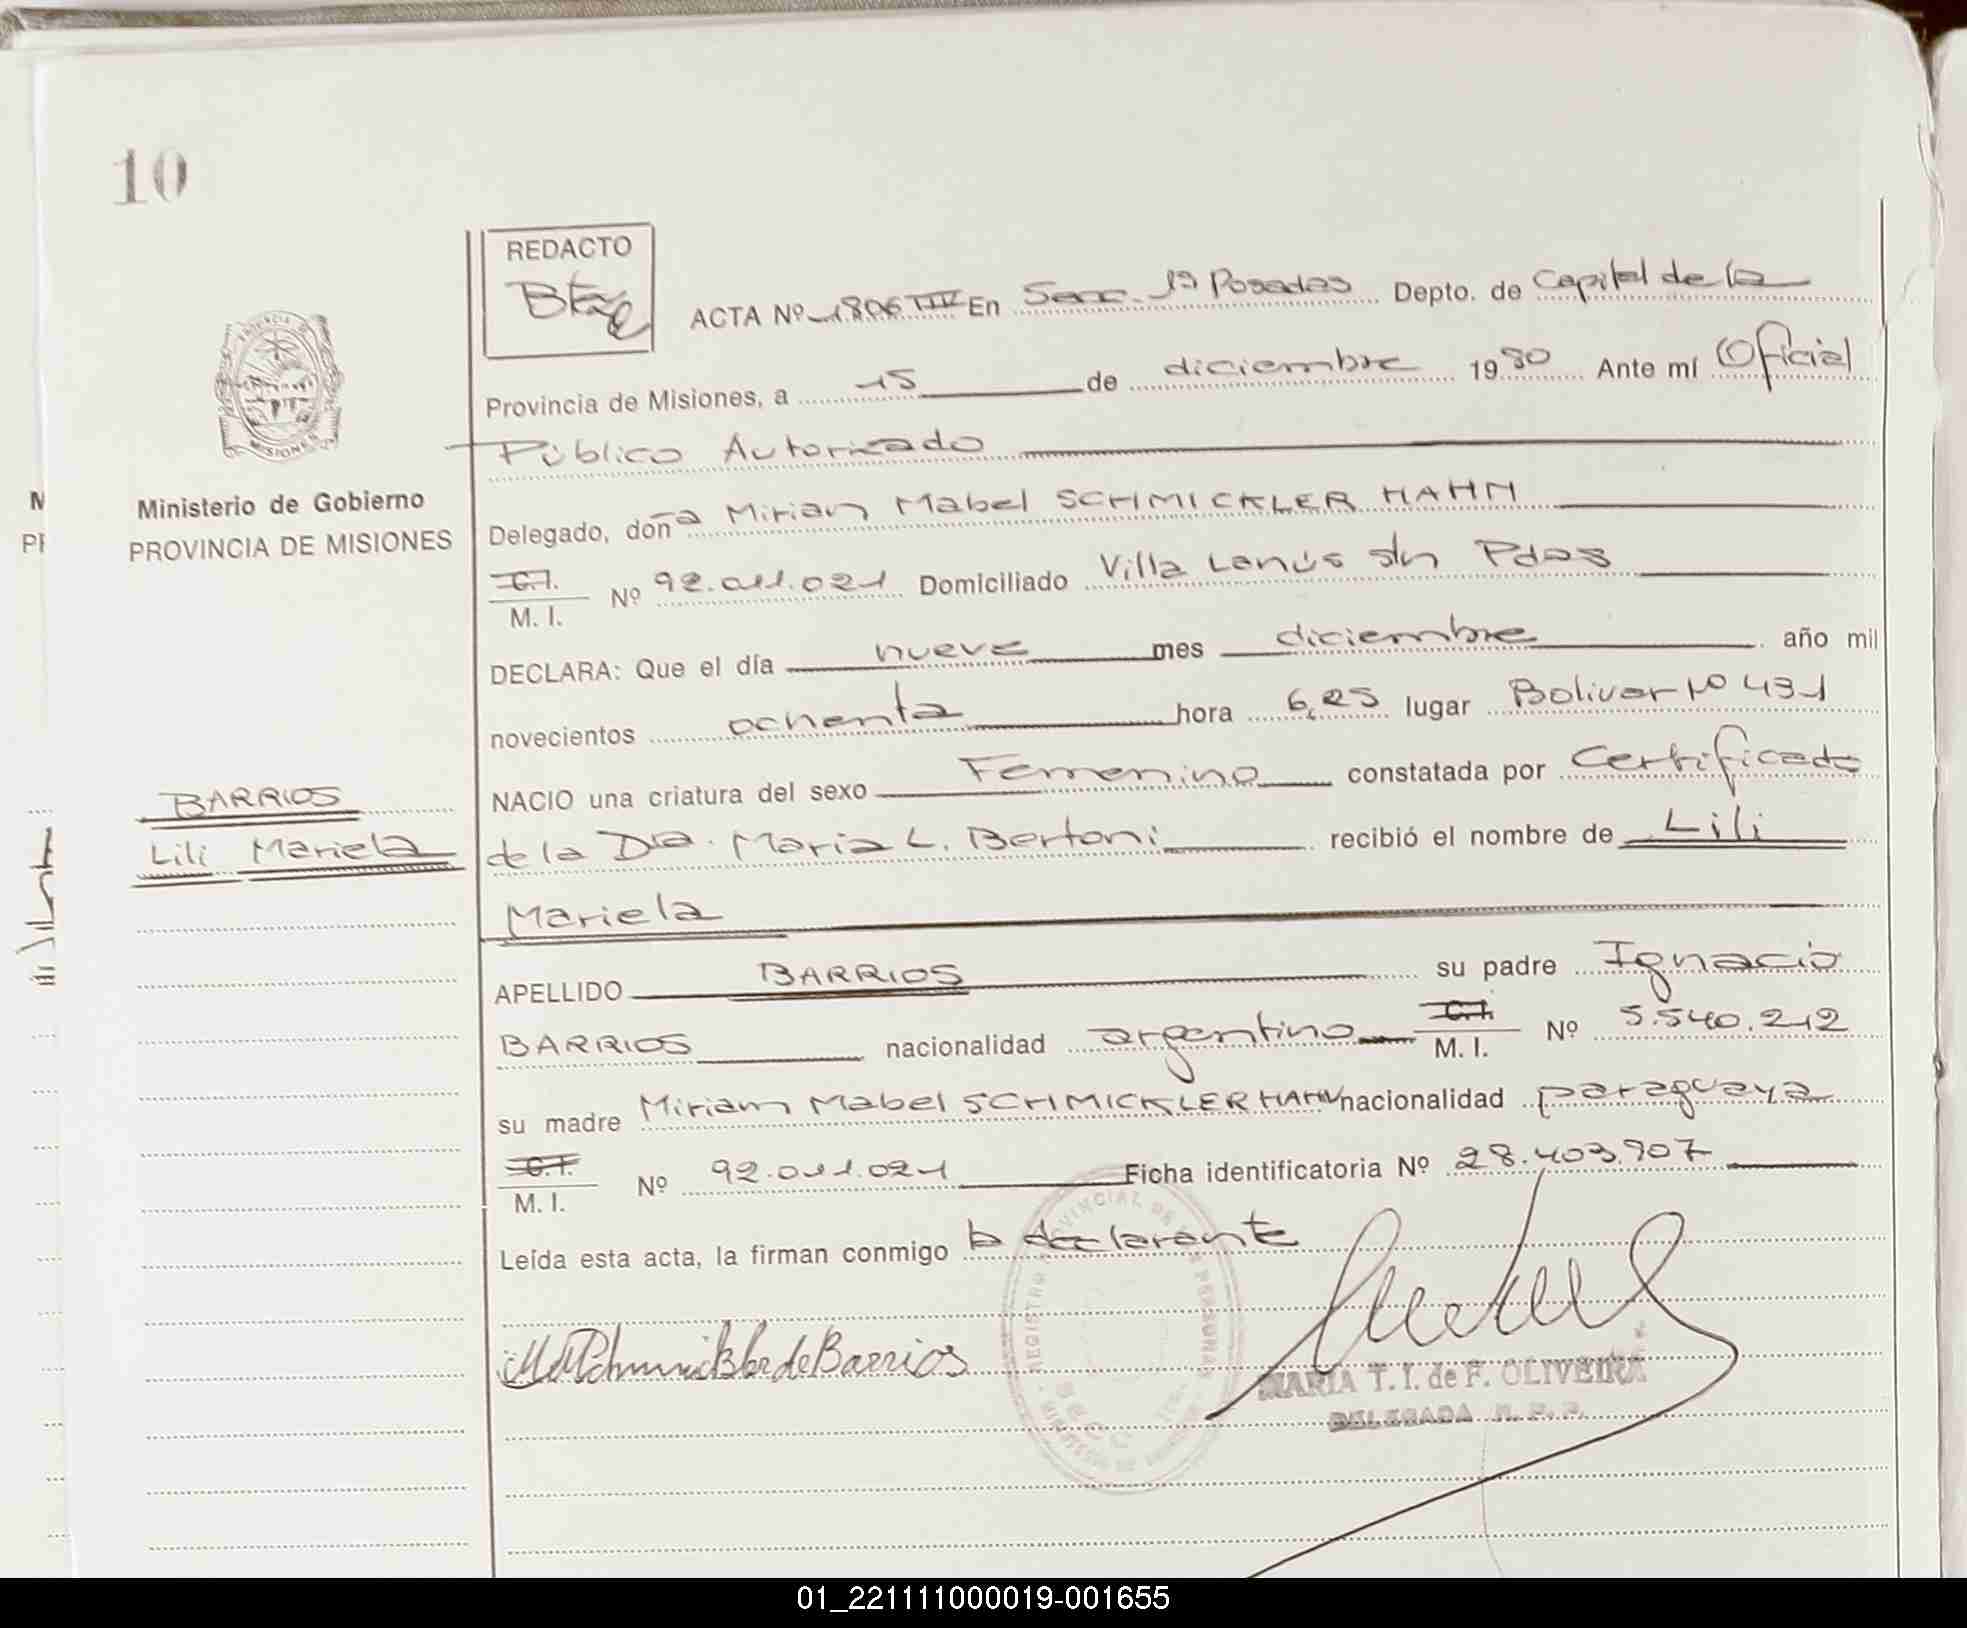 10
REDACTO
ACTA Nº 1806 TIV En Secc. 1ª Posadas Depto. de Capital de la
Provincia de Misiones, a 15 de diciembre 1980 Ante mí Oficial
Público Autorizado
Ministerio de Gobierno
PROVINCIA DE MISIONES
Delegado, doña Mirian Mabel SCHMICKLER HAHN
C.I.
M. I. Nº 92.011.021 Domiciliado Villa Lanús s/n Pdas
DECLARA: Que el día nueve mes diciembre año mil
novecientos ochenta hora 6,25 lugar Bolivar Nº 431
NACIO una criatura del sexo Femenino constatada por Certificado
BARRIOS
Lili Mariela
de la Dra. Maria L. Bertoni recibió el nombre de Lili
Mariela
APELLIDO BARRIOS su padre Ignacio
BARRIOS nacionalidad argentino C.I. M. I. Nº 5.540.212
su madre Miriam Mabel SCHMICKLER HAHN nacionalidad paraguaya
C.I.
M. I. Nº 92.011.021 Ficha identificatoria Nº 28.403.907
Leída esta acta, la firman conmigo la declarante
de Barrios
MARIA T. I. de F. OLIVEIRA
DELEGADA R. P. P.
01_221111000019-001655